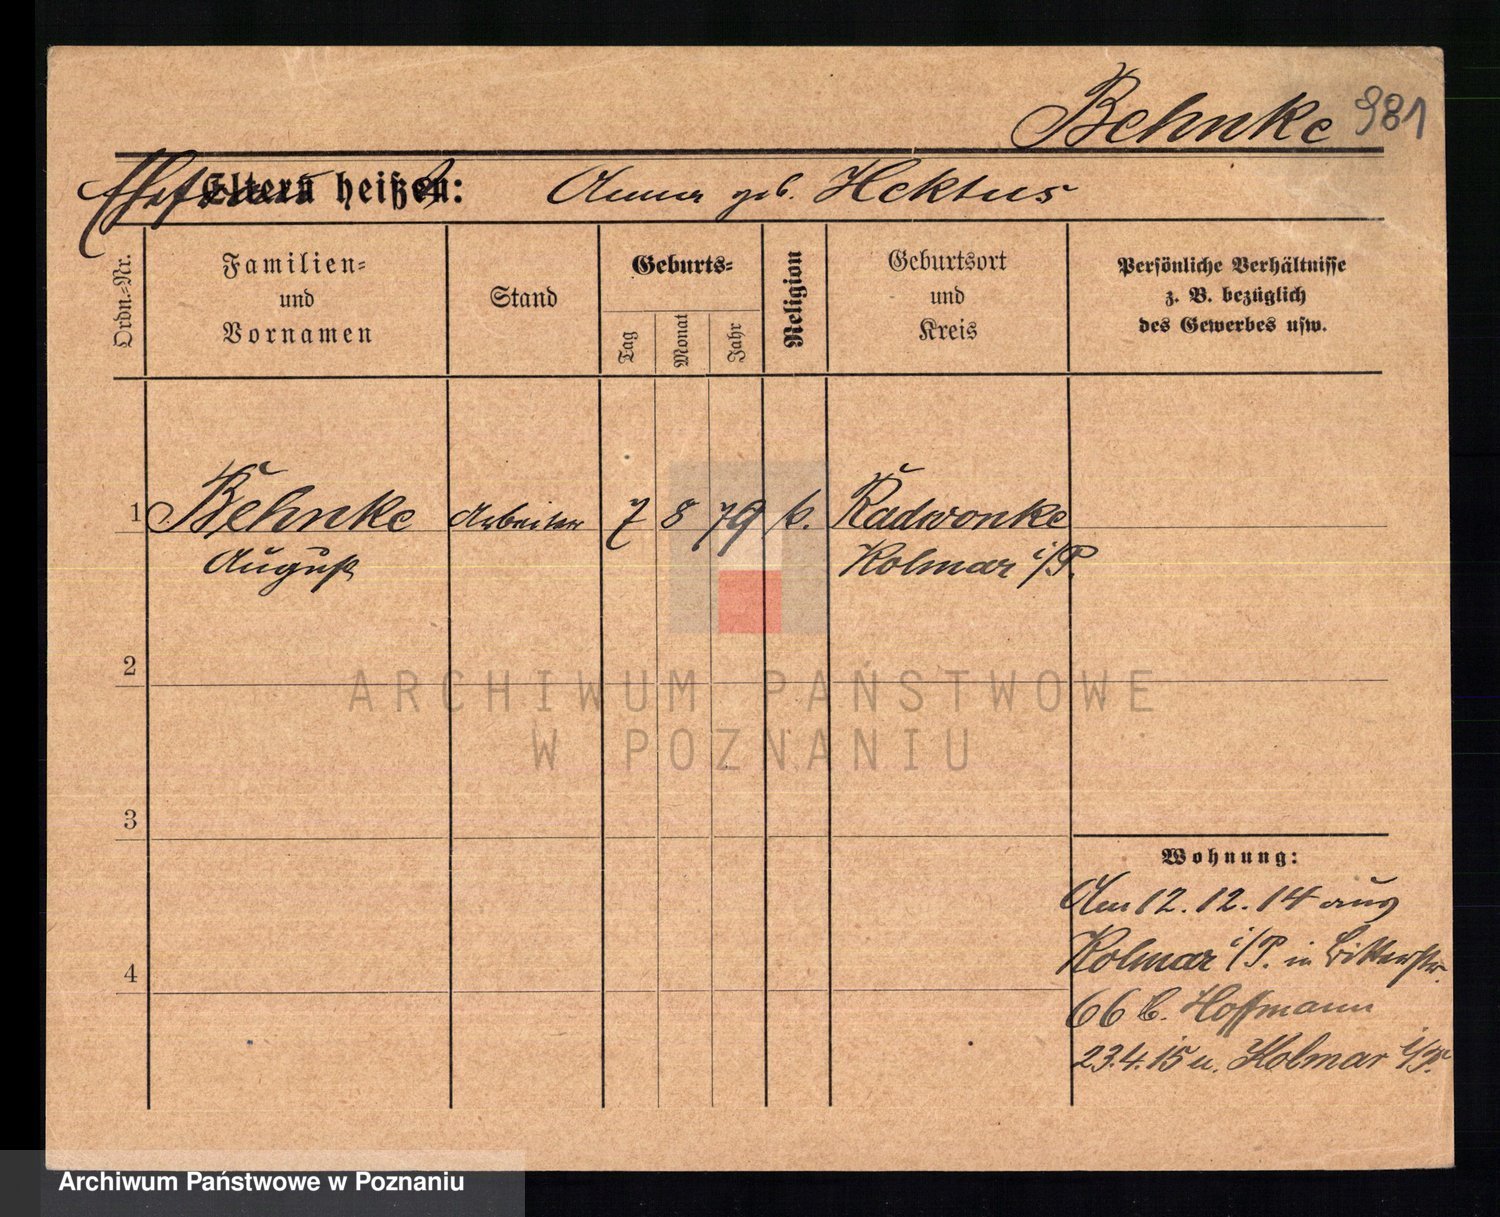 Behnke 981
Ehefrau
Eltern heißen: Anna geb. Hektus
Ordn.-Nr.
Familien-
und
Vornamen
Stand
Geburts-
Tag
Monat
Jahr
Religion
Geburtsort
und
Kreis
Persönliche Verhältnisse
z. B. bezüglich
des Gewerbes usw.
1 Behnke Arbeiter 7 8 79 k. Radwonke
August Kolmar i/P.
2
ARCHIWUM PAŃSTWOWE
W POZNANIU
3
Wohnung:
Am 12.12.14 aus
4
Kolmar i/P. in
66 b. Hoffmann
23.4.15 n. Kolmar i/P.
Archiwum Państwowe w Poznaniu